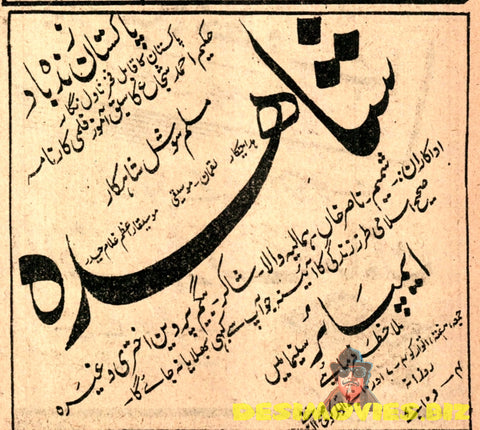 پاکستان زندہ باد
پاکستان کا قابل فخر ناول نگار
حکیم احمد شجاع کا سبق آموز فلمی کارنامہ
مسلم سوشل شاہکار
شاھدہ
ہدایتکار لقمان - موسیقی
موسیقار اعظم غلام حیدر
اداکاران:- شمیم - ناصر خاں - ہمالیہ والا - شاکر - بیگم پروین - اختری وغیرہ
صحیح اسلامی طرز زندگی کا آئینہ جو آپ سے کبھی بھلایا نہ جائے گا -
ایمپائر سینما میں
ملاحظہ فرمائیے
روزانہ
DESIMOVIES.BIZ